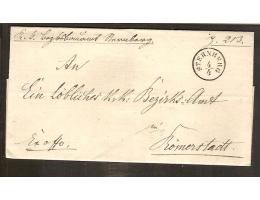 K. K. Bezirksamt Sternberg
N. 213.
STERNBERG
4/4
An
Ein Löbliches k.k. Bezirks-Amt
Ex offo.
in
Römerstadt